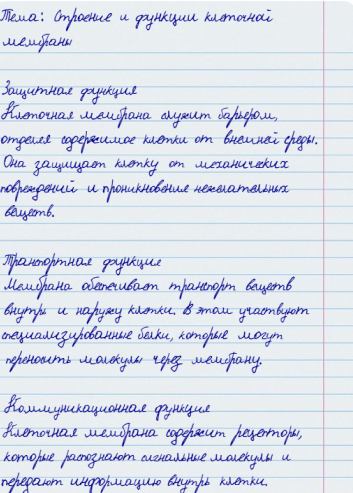 Тема: Строение и функции клеточной
мембраны
Защитная функция
Клеточная мембрана служит барьером,
отделяя содержимое клетки от внешней среды.
Она защищает клетку от механических
повреждений и проникновения нежелательных
веществ.
Транспортная функция
Мембрана обеспечивает транспорт веществ
внутрь и наружу клетки. В этом участвуют
специализированные белки, которые могут
переносить молекулы через мембрану.
Коммуникационная функция
Клеточная мембрана содержит рецепторы,
которые распознают сигнальные молекулы и
передают информацию внутрь клетки.